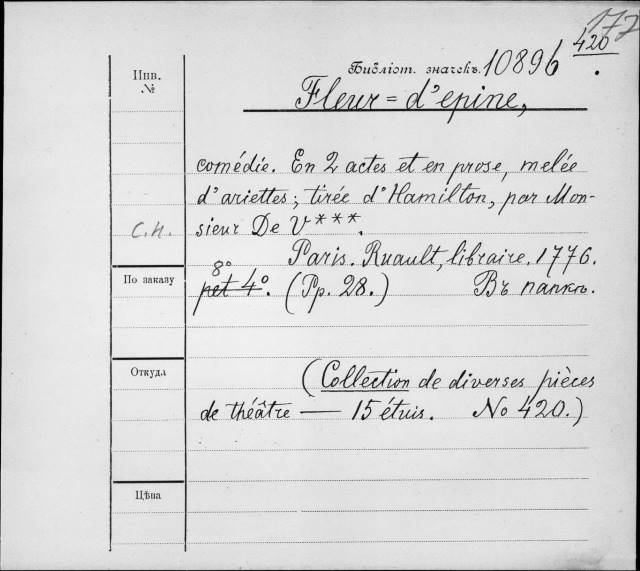 172
420
Инв.
№
Библіот. значекъ. 10896.
Fleur = d'epine,
comédie. En 2 actes et en prose, melée
d'ariettes; tirée d'Hamilton, par Mon-
С.Н.
sieur De V***.
Paris. Ruault, libraire. 1776.
8°
По заказу
pet 4°. (Pp. 28.) Въ папкѣ.
Откуда
(Collection de diverses pièces
de théâtre — 15 étuis. No 420.)
Цѣна